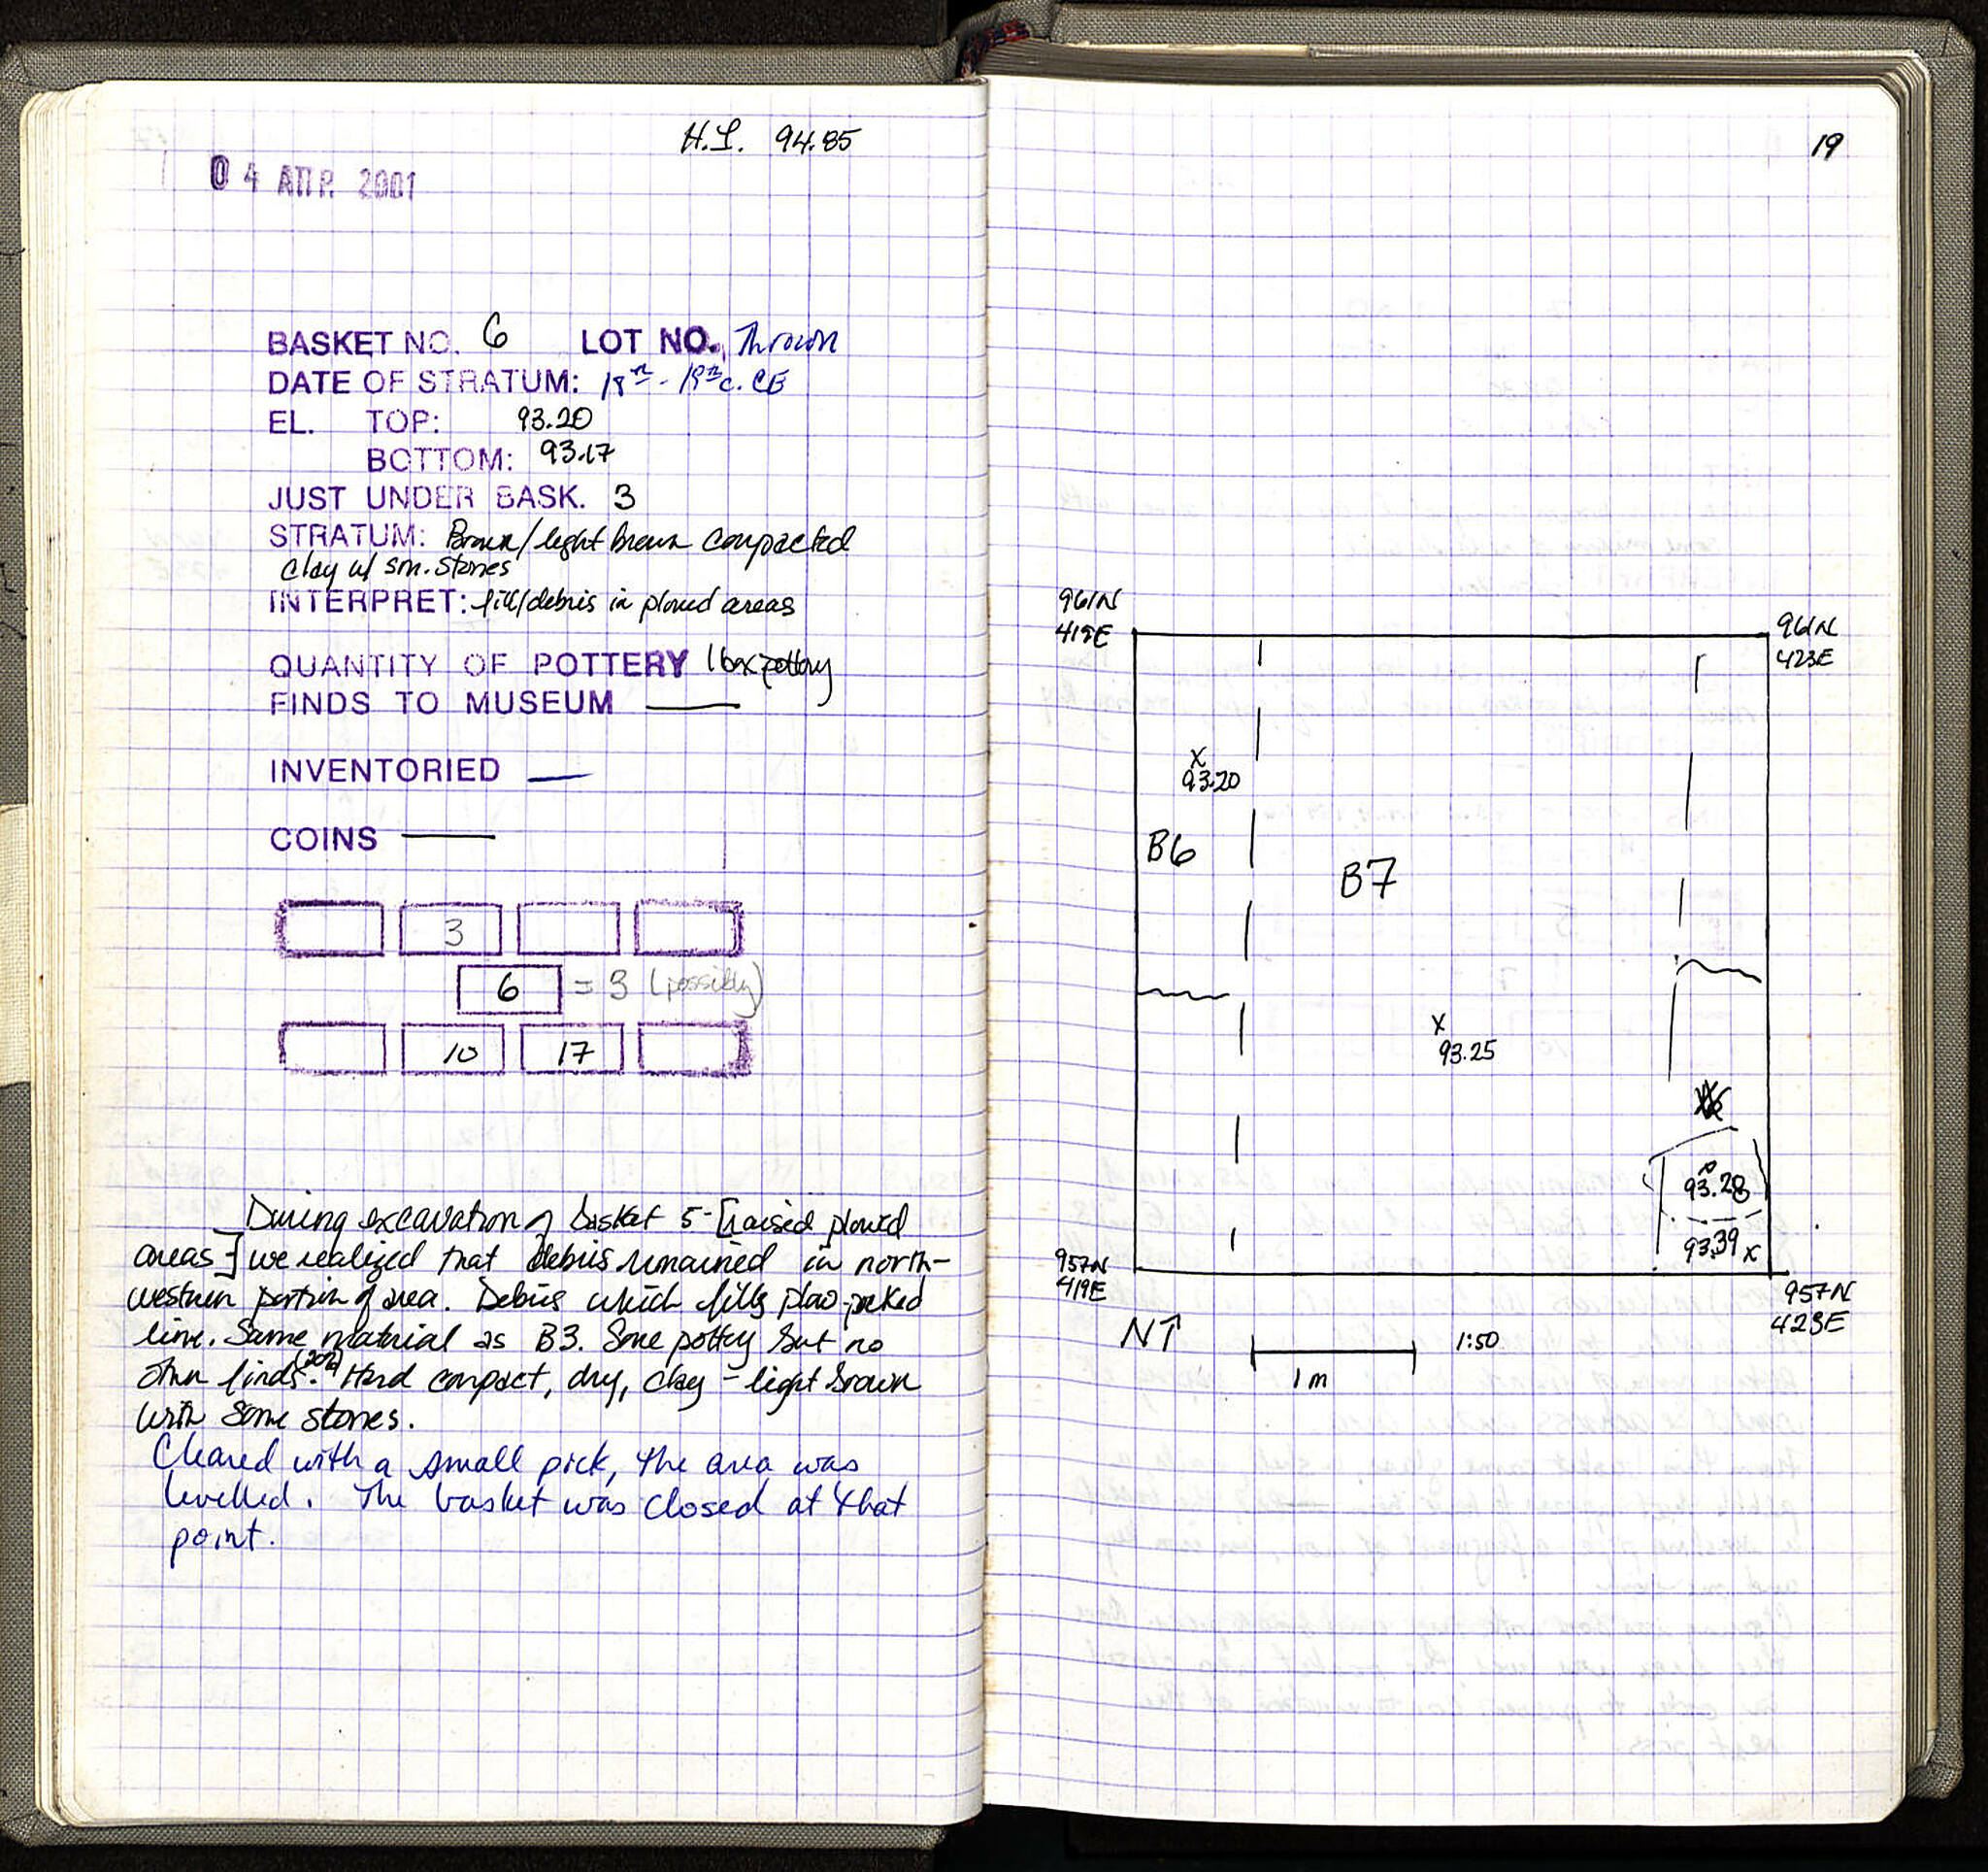 H.I. 94.85
04 ΑΠΡ. 2001
BASKET NO. 6 LOT NO. Thrown
DATE OF STRATUM: 18th - 19th c. CE
EL. TOP: 93.20
BOTTOM: 93.17
JUST UNDER BASK. 3
STRATUM: Brown/light brown compacted
clay w/ sm. stones
INTERPRET: fill/debris in plowed areas
QUANTITY OF POTTERY 1 box pottery
FINDS TO MUSEUM —
INVENTORIED —
COINS —
3
6 = 3 (possibly)
10 17
During excavation of basket 5 - [raised plowed
areas] we realized that debris remained in north-
western portion of area. Debris which fills plow-
line. Same material as B3. Some pottery but no
other finds. Hard compact, dry, clay - light brown
with some stones.
Cleared with a small pick, the area was
levelled. The basket was closed at that
point.
19
961N
419E
961N
423E
X
93.20
B6
B7
X
93.25
93.28
93.39 x
957N
419E
957N
423E
N↑
1:50
1m